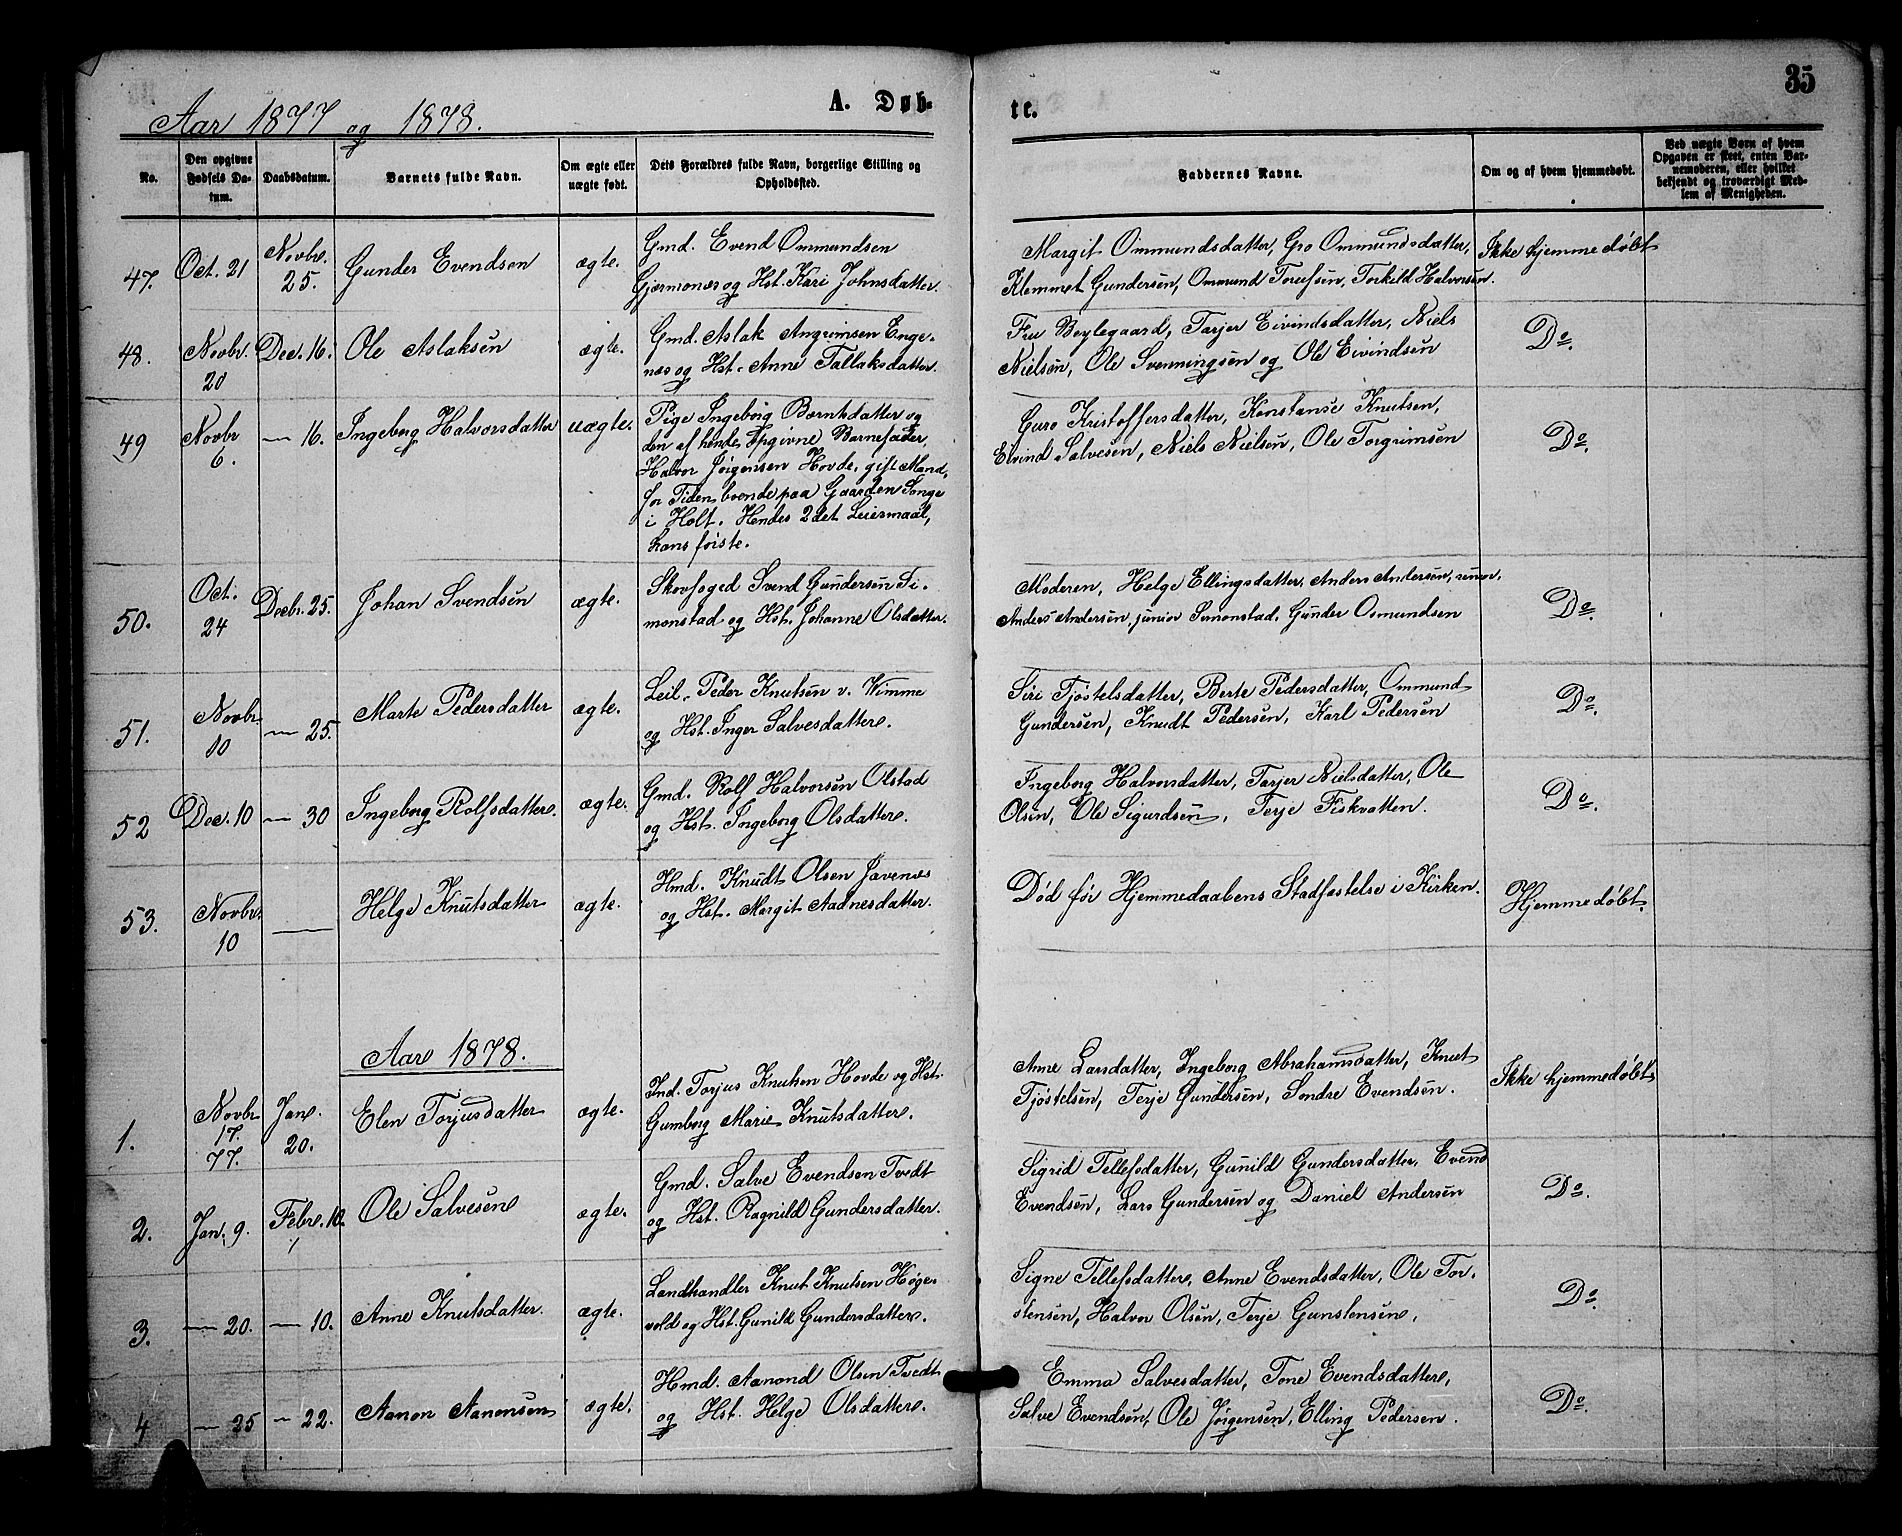 35
A. Døb-
te.
Aar 1877 og 1878.
No.
Den opgivne Fødsels Da-
tum.
Daabsdatum.
Barnets fulde Navn.
Om ægte eller
uægte født.
Dets Forældres fulde Navn, borgerlige Stilling og
Opholdssted.
Faddernes Navne.
Om og af hvem hjemmedøbt.
Ved uægte Børn af hvem
Opgaven er skeet, enten Bar-
nemoderen, eller hvilket
bekjendt og troværdigt Med-
lem af Menigheden.
47. Oct. 21 Novbr. 25. Gunder Evendsen ægte.
Gmd. Evend Ommundsen
Gjermones og Hst. Kari Johnsdatter.
Margit Ommundsdatter, Gro Ommundsdatter,
Klemmet Gundersen, Ommund Torufsen, Torkild Halvorsen.
Ikke hjemmedøbt
48. Novbr. 20 Dec. 16. Ole Aslaksen ægte.
Gmd. Aslak Angrimsen Enge-
nes og Hst. Anne Tallaksdatter.
Fru Beylegaard, Tarjer Eivindsdatter, Niels
Nielsen, Ole Svenningsen og Ole Eivindsen
Do.
49 Novbr 6. — 16. Ingeborg Halvorsdatter uægte.
Pige Ingeborg Berntsdatter og
den af hende Opgivne Barnefader,
Halvor Jörgensen Hovde, gift Mand,
for Tiden boende paa Gaarden Songe
i Holt. Hendes 2det Leiermaal,
hans förste.
Guro Kristoffersdatter, Konstanse Knutsen,
Eivind Salvesen, Niels Nielsen, Ole Torgrimsen
Do.
50. Oct. 24 Decbr. 25. Johan Svendsen ægte.
Skovfoged Svend Gundersen Si-
monstad og Hst. Johanne Olsdatter.
Moderen, Helge Ellingsdatter, Anders Andersen, senior,
Anders Andersen, junior Simonstad, Gunder Osmundsen
Do.
51. Novbr 10 — 25. Marte Pedersdatter ægte.
Leil. Peder Knutsen v. Vimme
og Hst. Inger Salvesdatter.
Siri Tjöstelsdatter, Berte Pedersdatter, Ommund
Gundersen, Knudt Pedersen, Karl Pedersen
Do.
52 Dec. 10 — 30 Ingeborg Rolfsdatter. ægte.
Gmd. Rolf Halvorsen Olstad
og Hst. Ingeborg Olsdatter.
Ingeborg Halvorsdatter, Tarjer Nielsdatter, Ole
Olsen, Ole Sigurdsen, Terje Fiskvatten.
Do.
53. Novbr 10 — Helge Knutsdatter ægte.
Hmd. Knudt Olsen Javenes
og Hst. Margit Aadnesdatter.
Död før Hjemmedaabens Stadfæstelse i Kirken.
Hjemmedöbt.
Aar 1878.
1. Novbr 17. 77. Jan. 20. Elen Torjusdatter ægte.
Ind. Torjus Knutsen Hovde og Hst.
Gumborg Marie Knutsdatter.
Anne Larsdatter, Ingeborg Abrahamsdatter, Knut
Tjöstelsen, Terje Gundersen, Sondre Evendsen.
Ikke hjemmedøbt
2. Jan. 9. Febr. 10. Ole Salvesen ægte.
Gmd. Salve Evendsen Tvedt
og Hst. Ragnild Gundersdatter.
Sigrid Tellefsdatter, Gunild Gundersdatter, Evend
Evendsen, Lars Gundersen og Daniel Andersen
Do.
3. — 20. — 10. Anne Knutsdatter. ægte.
Landhandler Knut Knutsen Høge-
vold og Hst. Gunild Gundersdatter.
Signe Tellefsdatter, Anne Evendsdatter, Ole Tor-
stensen, Halvor Olsen, Terje Gunstensen,
Do.
4 — 25 — 22. Aanon Aanonsen ægte.
Hmd. Aanond Olsen Tvedt
og Hst. Helge Olsdatter.
Emma Salvesdatter, Tone Evendsdatter,
Salve Evendsen, Ole Jörgensen, Elling Pedersen.
Do.